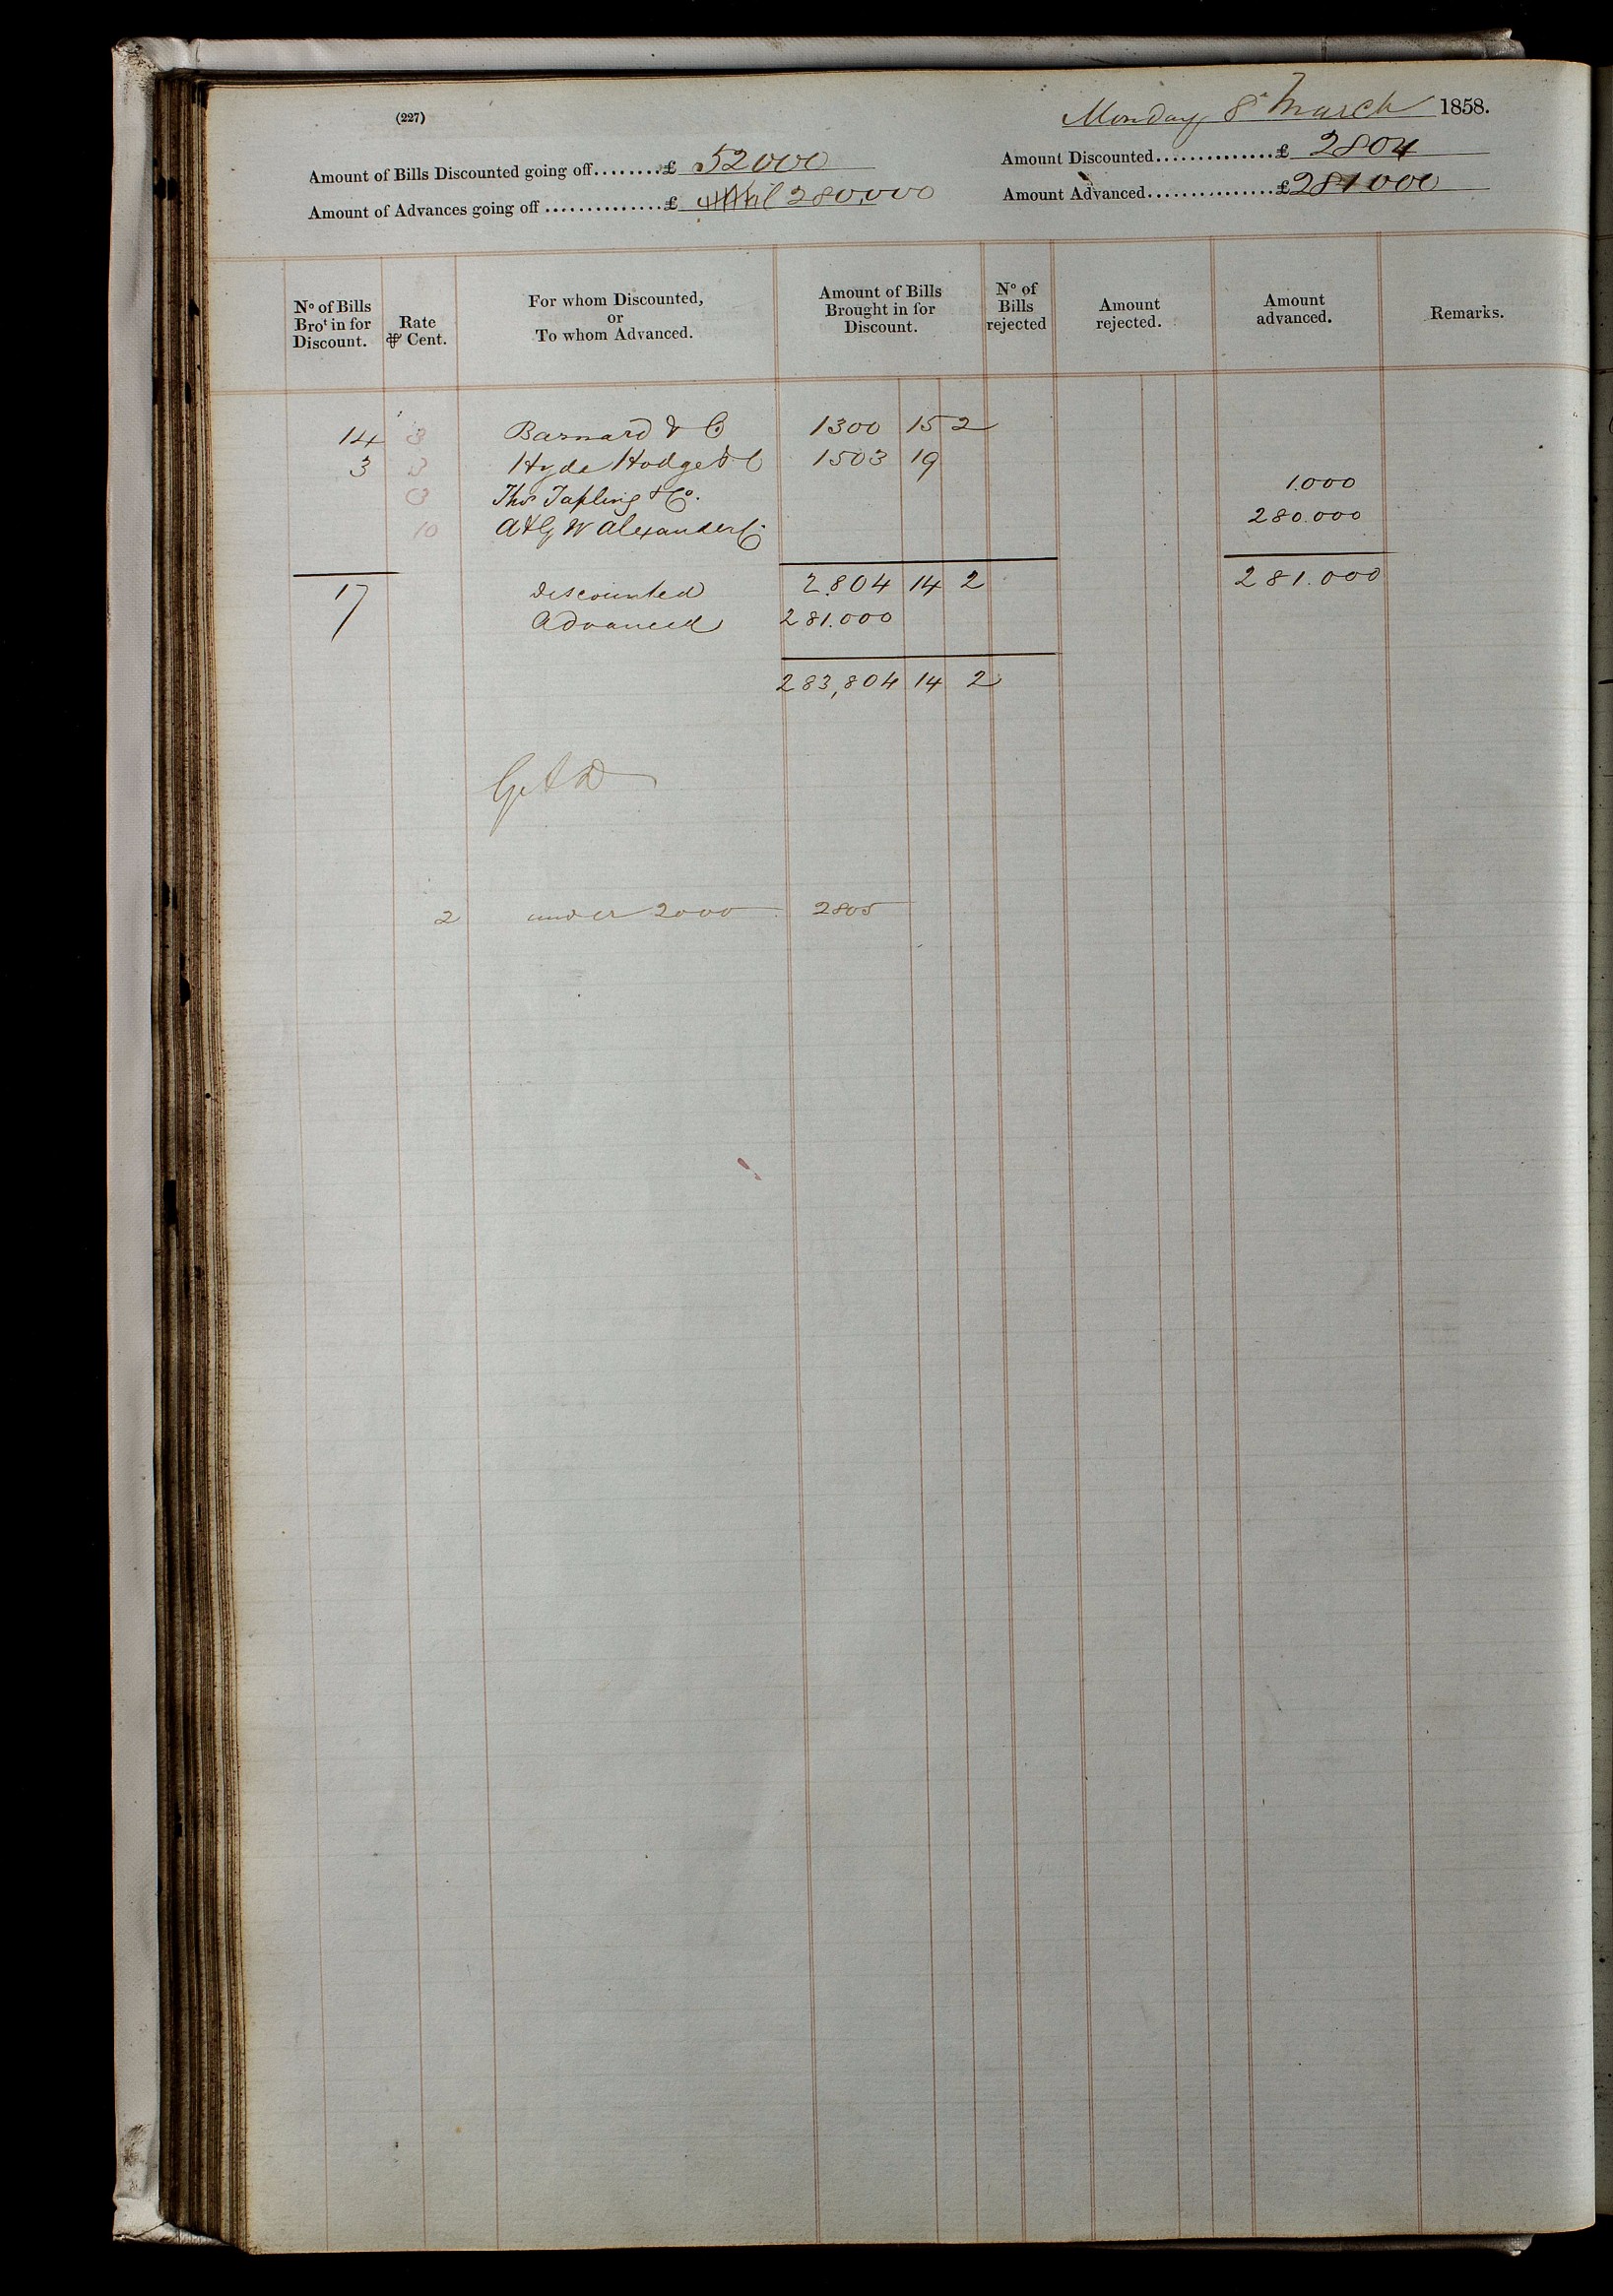 (227)
Monday 8 March 1858.
Amount of Bills Discounted going off........£ 52000
Amount Discounted..............£ 2804
Amount of Advances going off ..............£ 280,000
Amount Advanced................£ 281000
No of Bills Brot in for Discount.
Rate ⅌ Cent.
For whom Discounted, or To whom Advanced.
Amount of Bills Brought in for Discount.
No of Bills rejected
Amount rejected.
Amount advanced.
Remarks.
14 3 Barnard & Co 1300 15 2
3 3 Hyde Hodge & C 1503 19
3 Thos Tapling & Co. 1.000
10 A & G W Alexander & Co 280.000
17 Discounted 2.804 14 2 281.000
Advanced 281.000
283,804 14 2
2 under 2000 2805